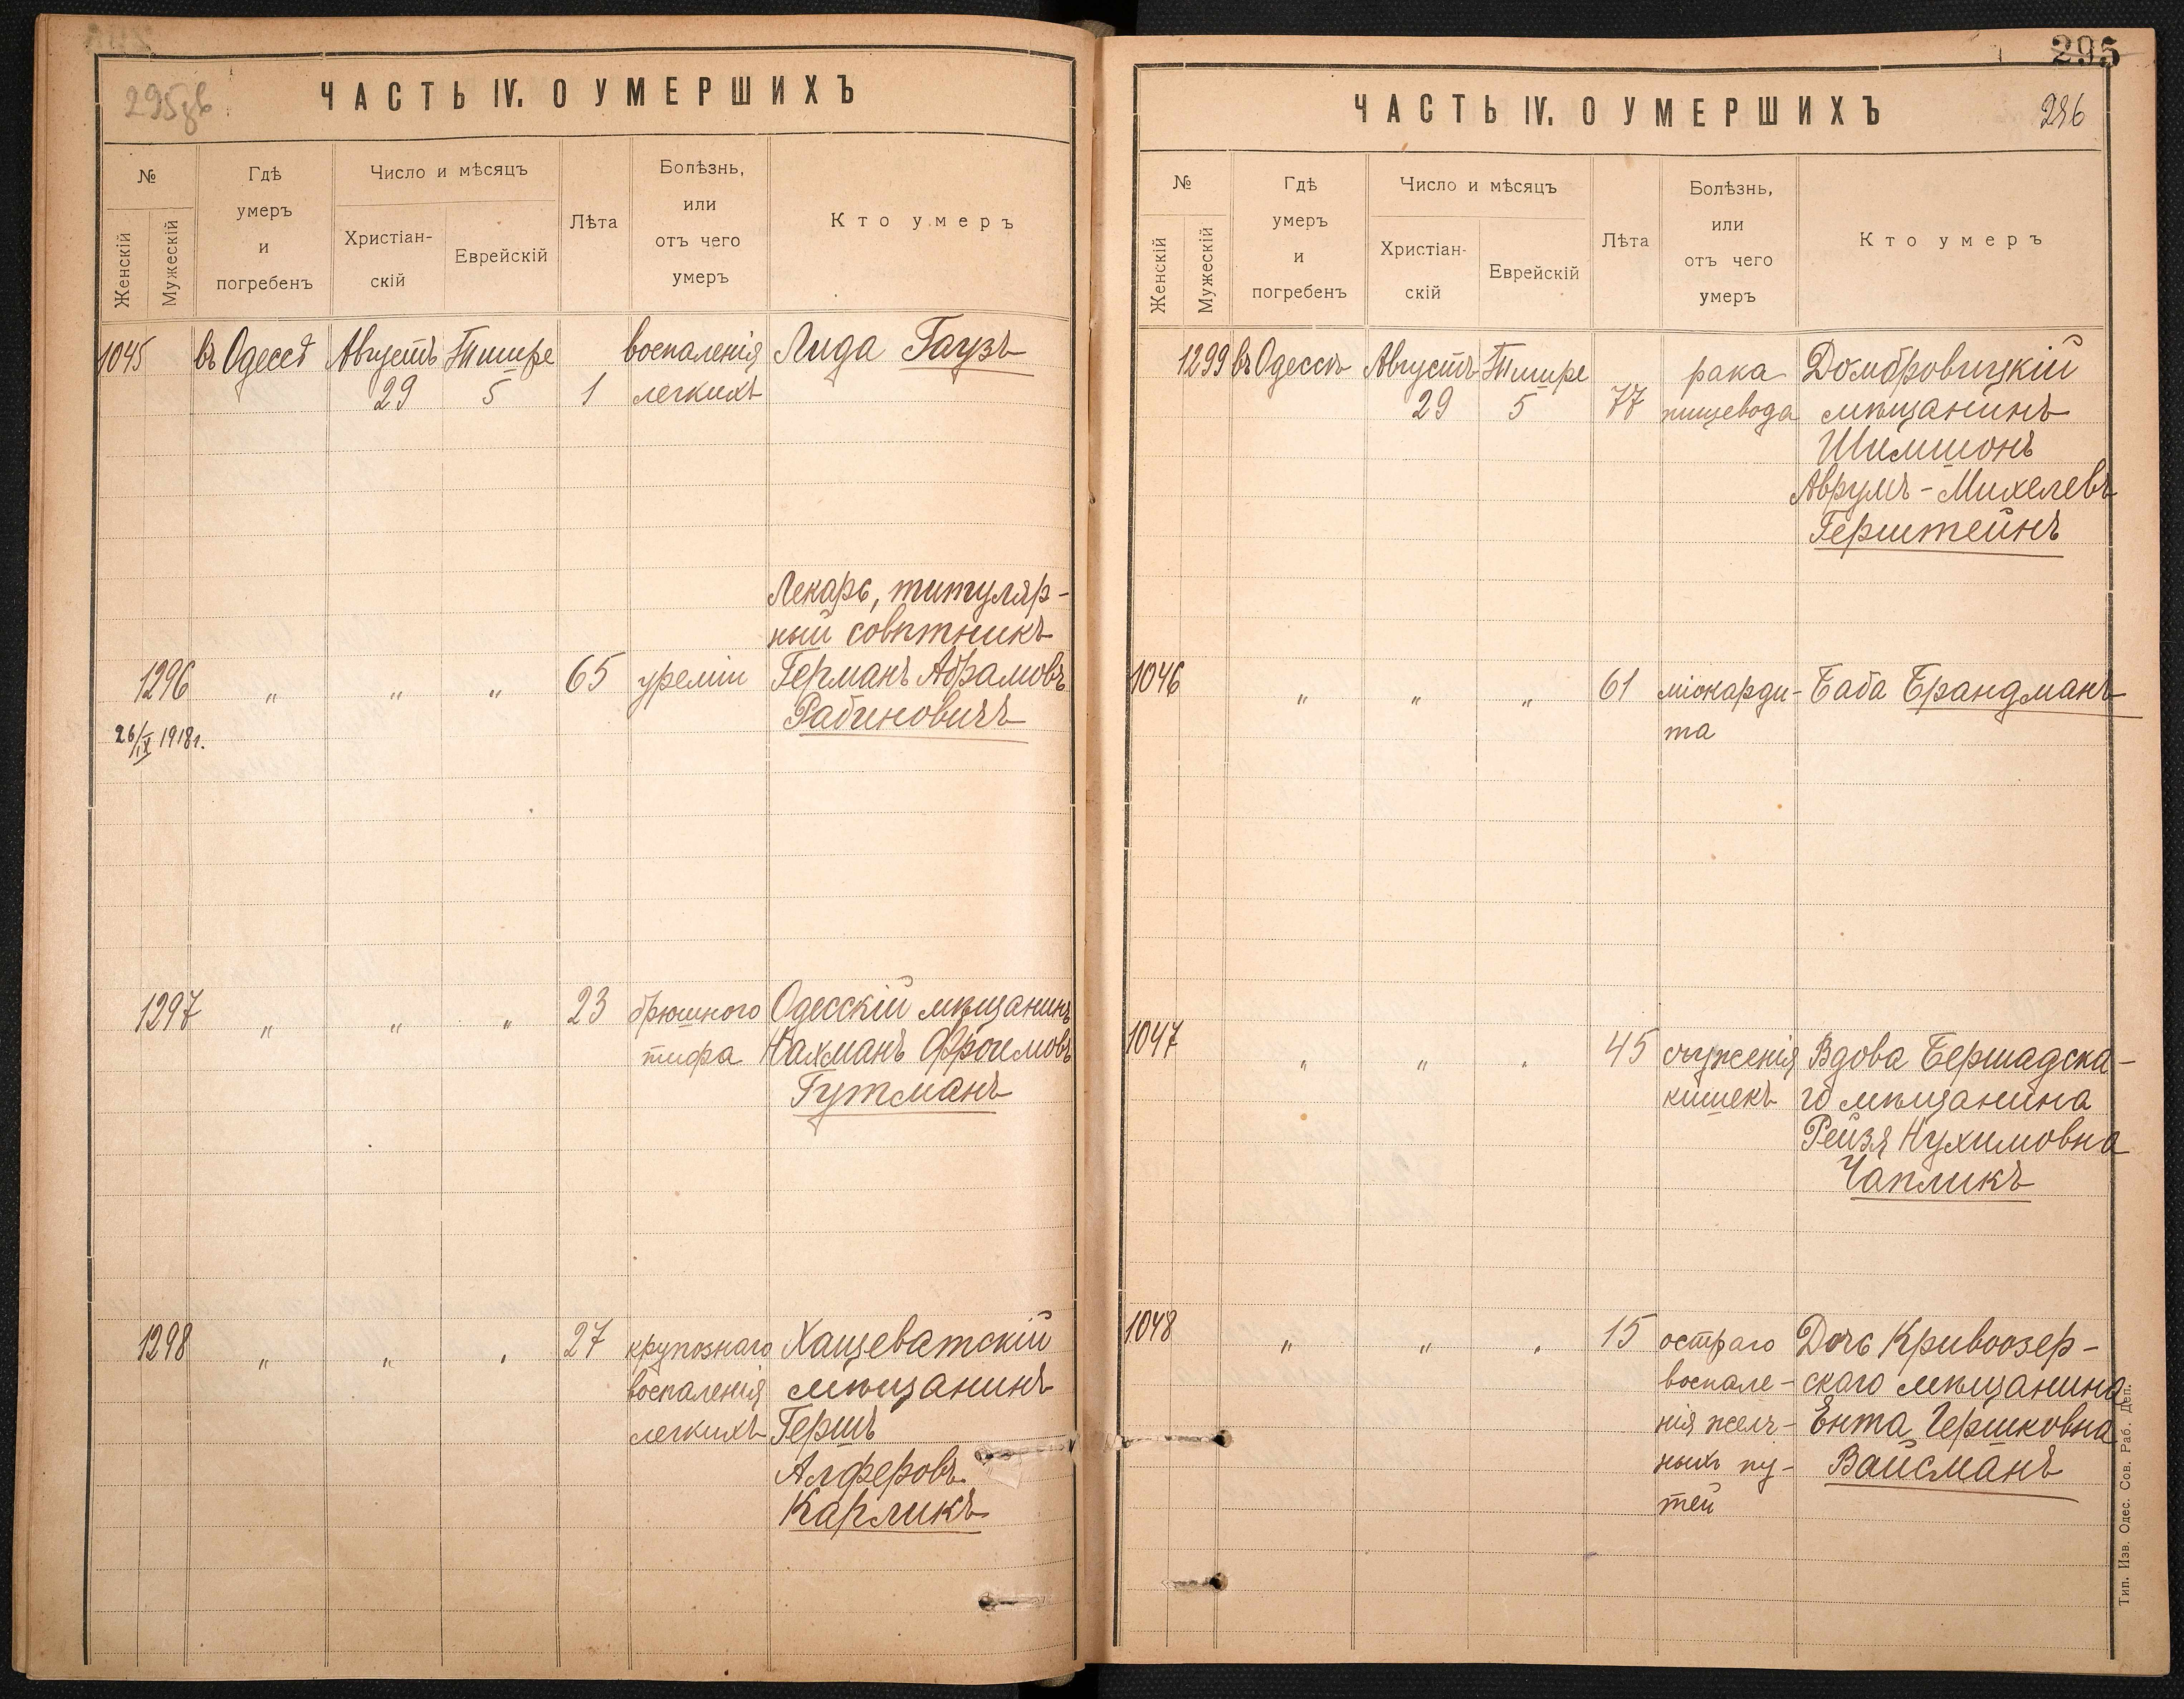 295об.
ЧАСТЬ IV. О УМЕРШИХЪ
№
Женскій
Мужескій
Гдѣ
умеръ
и
погребенъ
Число и мѣсяцъ
Христіан-
скій
Еврейскій
Лѣта
Болѣзнь,
или
отъ чего
умеръ
Кто умеръ
1045 въ Одессѣ Августъ Тишре воспаленія Лида Гаузъ
29 5 1 легкихъ
Лекарь, титуляр-
ный совѣтникъ
1296 " " " 65 уреміи Германъ Абрамовъ
Рабиновичъ
26/IX 1918г.
1297 " " " 23 брюшного Одесскій мѣщанинъ
тифа Нахманъ Фроимовъ
Гутманъ
1298 " " " 27 крупознаго Хащеватскій
воспаленія мѣщанинъ
легкихъ Гершъ
Алферовъ
Карликъ
295
ЧАСТЬ IV. О УМЕРШИХЪ
296
№
Женскій
Мужескій
Гдѣ
умеръ
и
погребенъ
Число и мѣсяцъ
Христіан-
скій
Еврейскій
Лѣта
Болѣзнь,
или
отъ чего
умеръ
Кто умеръ
1299 въ Одессѣ Августъ Тишре рака Домбровицкій
29 5 77 пищевода мѣщанинъ
Шимшонъ
Аврумъ-Михелевъ
Герштейнъ
1046 " " " 61 міокарди- Баба Брандманъ
та
1047 " " " 45 съуженія Вдова Бершадска-
кишекъ го мѣщанина
Рейзя Нухимовна
Чапликъ
1048 " " " 15 остраго Дочь Кривоозер-
воспале- скаго мѣщанина
нія желч- Ента Гершковна
ныхъ пу- Вайсманъ
тей
Тип. Изв. Одес. Сов. Раб. Деп.